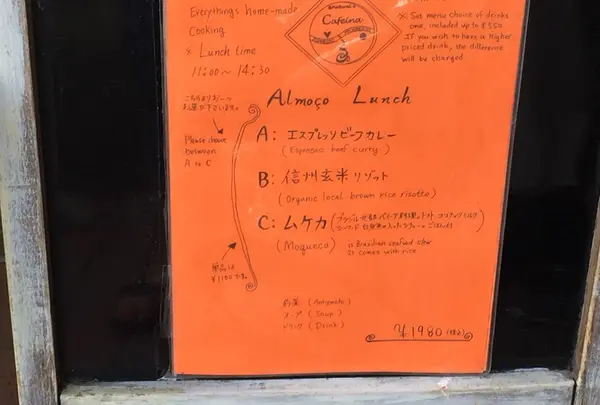 Everything's home-made
Cooking
※ Lunch time
11:00～14:30
Cafeína
※ Set menu choice of drinks
one, included up to ¥550
If you wish to have a higher
priced drink, the difference
will be charged
Almoço Lunch
こちらより お一つ
お選び下さいませ。
Please choose
between
A to C
A: エスプレッソビーフカレー
(Espresso beef curry)
B: 信州玄米リゾット
(Organic local brown rice risotto)
C: ムケカ
(Moqueca) is Brazilian seafood stew
It comes with rice
単品は
¥1180です。
前菜 (Antipasto)
スープ (Soup)
ドリンク (Drink)
¥1980 (税込)